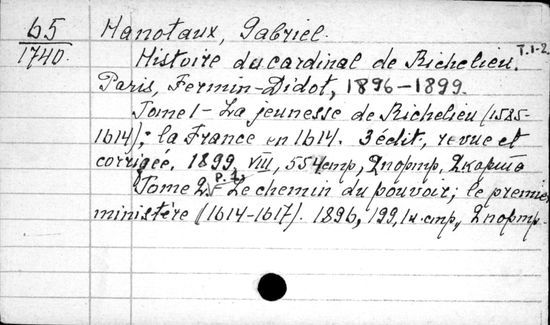 65 Hanotaux, Gabriel.
1740. Histoire du cardinal de Richelieu. T.1-2
Paris, Fermin-Didot, 1896-1899.
Tome 1 - La jeunesse de Richelieu (1585-
1614); la France en 1614. 3 édit, revue et
corrigée. 1899, VIII, 554 стр, 2 портр, 2 карты
Tome 2, p. 1, - Le chemin du pouvoir; le premier
ministère (1614-1617). 1896, 199, 1 н. стр, 2 портр.